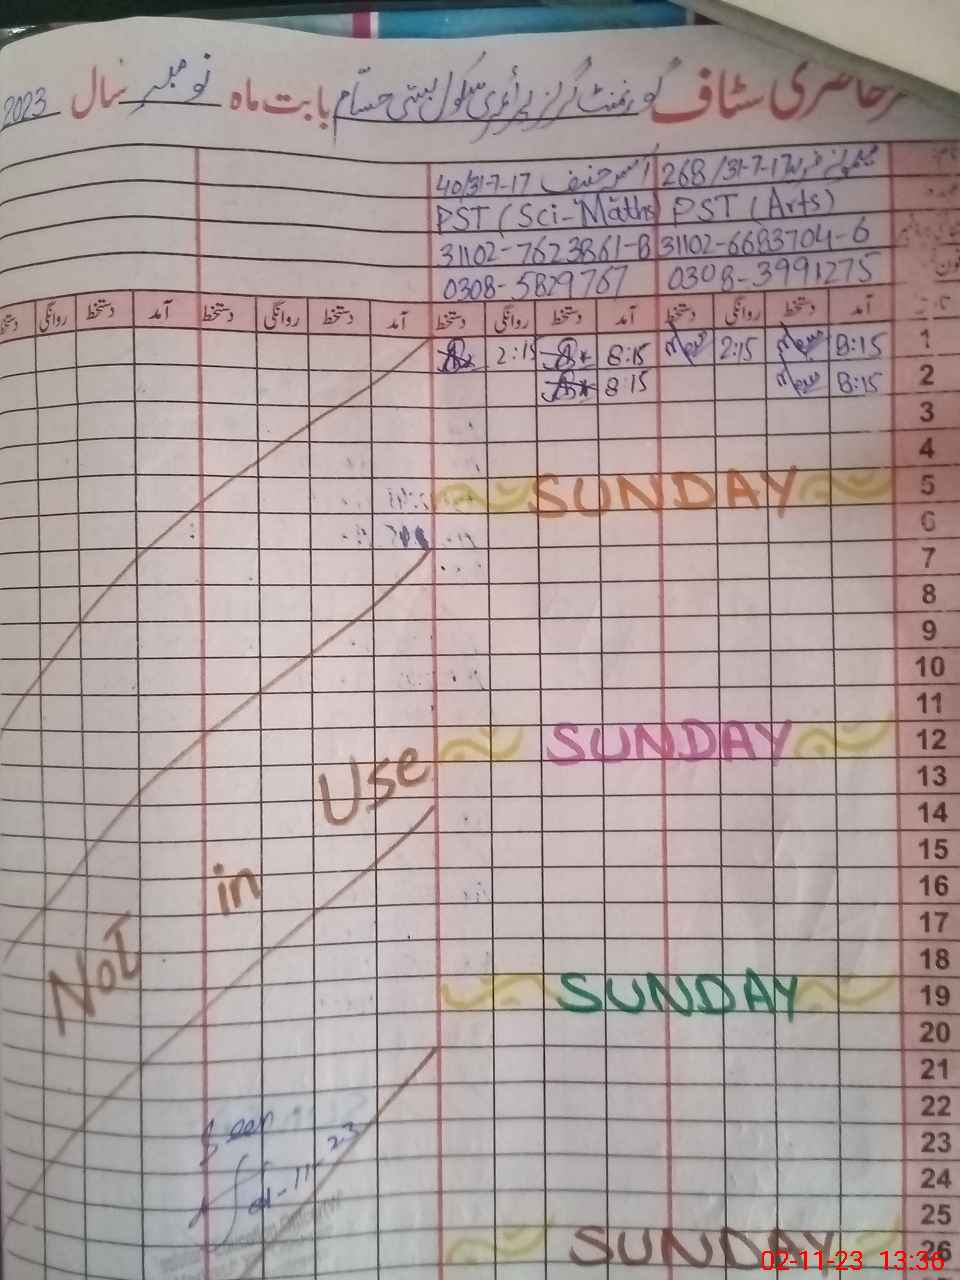 حاضری سٹاف گورنمنٹ گرلز پرائمری سکول بستی حسام بابت ماہ نومبر سال 2023
268/31-7-17
40/31-7-17 حنیف
PST (Arts)
PST (Sci-Maths
31102-6683704-6
31102-7623861-8
0308-3991275
0308-5829767
آمد دستخط روانگی دستخط آمد دستخط روانگی دستخط آمد دستخط روانگی دستخط آمد دستخط روانگی دستخط
1 8:15 2:15 8:15 2:15
2 8:15 8:15
3
4
5 SUNDAY
6
7
8
9
10
11
12 SUNDAY
13
14
15
16
17
18
19 SUNDAY
20
21
22
23
24
25
26 SUNDAY
Not in Use
Seen
01-11-23
02-11-23 13:36